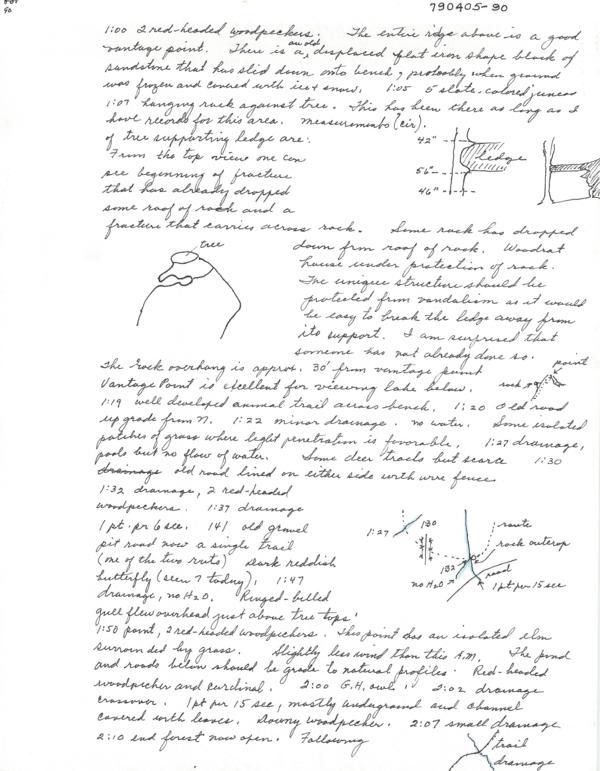 790405-90
90
1:00 2 red-headed woodpeckers. The entire ridge above is a good
vantage point. There is an old, displaced flat iron shape block of
sandstone that has slid down onto bench, probably when ground
was frozen and covered with ice & snow. 1:05 5 slate-colored juncos
1:07 hanging rock against tree. This has been there as long as I
have records for this area. Measurements (cir).
of tree supporting ledge are:
From the top view one can
see beginning of fracture
that has already dropped
some roof of rock and a
fracture that carries across rock. Some rock has dropped
42"
56"
46"
ledge
tree
down from roof of rock. Woodrat
house under protection of rock.
The unique structure should be
protected from vandalism as it would
be easy to break the ledge away from
its support. I am surprised that
someone has not already done so.
The rock overhang is approx. 30' from vantage point
Vantage Point is excellent for viewing lake below.
point
rock
1:19 well developed animal trail across bench. 1:20 Old road
up grade from N. 1:22 minor drainage. no water. Some isolated
patches of grass where light penetration is favorable. 1:27 drainage,
pools but no flow of water. Some deer tracks but scarce 1:30
drainage old road lined on either side with wire fence
1:32 drainage, 2 red-headed
woodpeckers. 1:37 drainage
1 pt. pr 6 sec. 141 old gravel
pit road now a single trail
(one of the two ruts) Dark reddish
butterfly (seen 7 today), 1:47
drainage, no H2O. Ringed-billed
gull flew overhead just above tree tops!
1:27
130
132
no H2O
route
rock outcrop
road
1 pt per 15 sec
1:50 point, 2 red-headed woodpeckers. This point has an isolated elm
surrounded by grass. Slightly less wind than this A.M. The pond
and roads below should be grade to natural profiles. Red-headed
woodpecker and cardinal. 2:00 G.H. owl! 2:02 drainage
crossover. 1 pt per 15 sec, mostly underground and channel
covered with leaves. Downy woodpecker. 2:07 small drainage
2:10 end forest now open. Following
trail
drainage